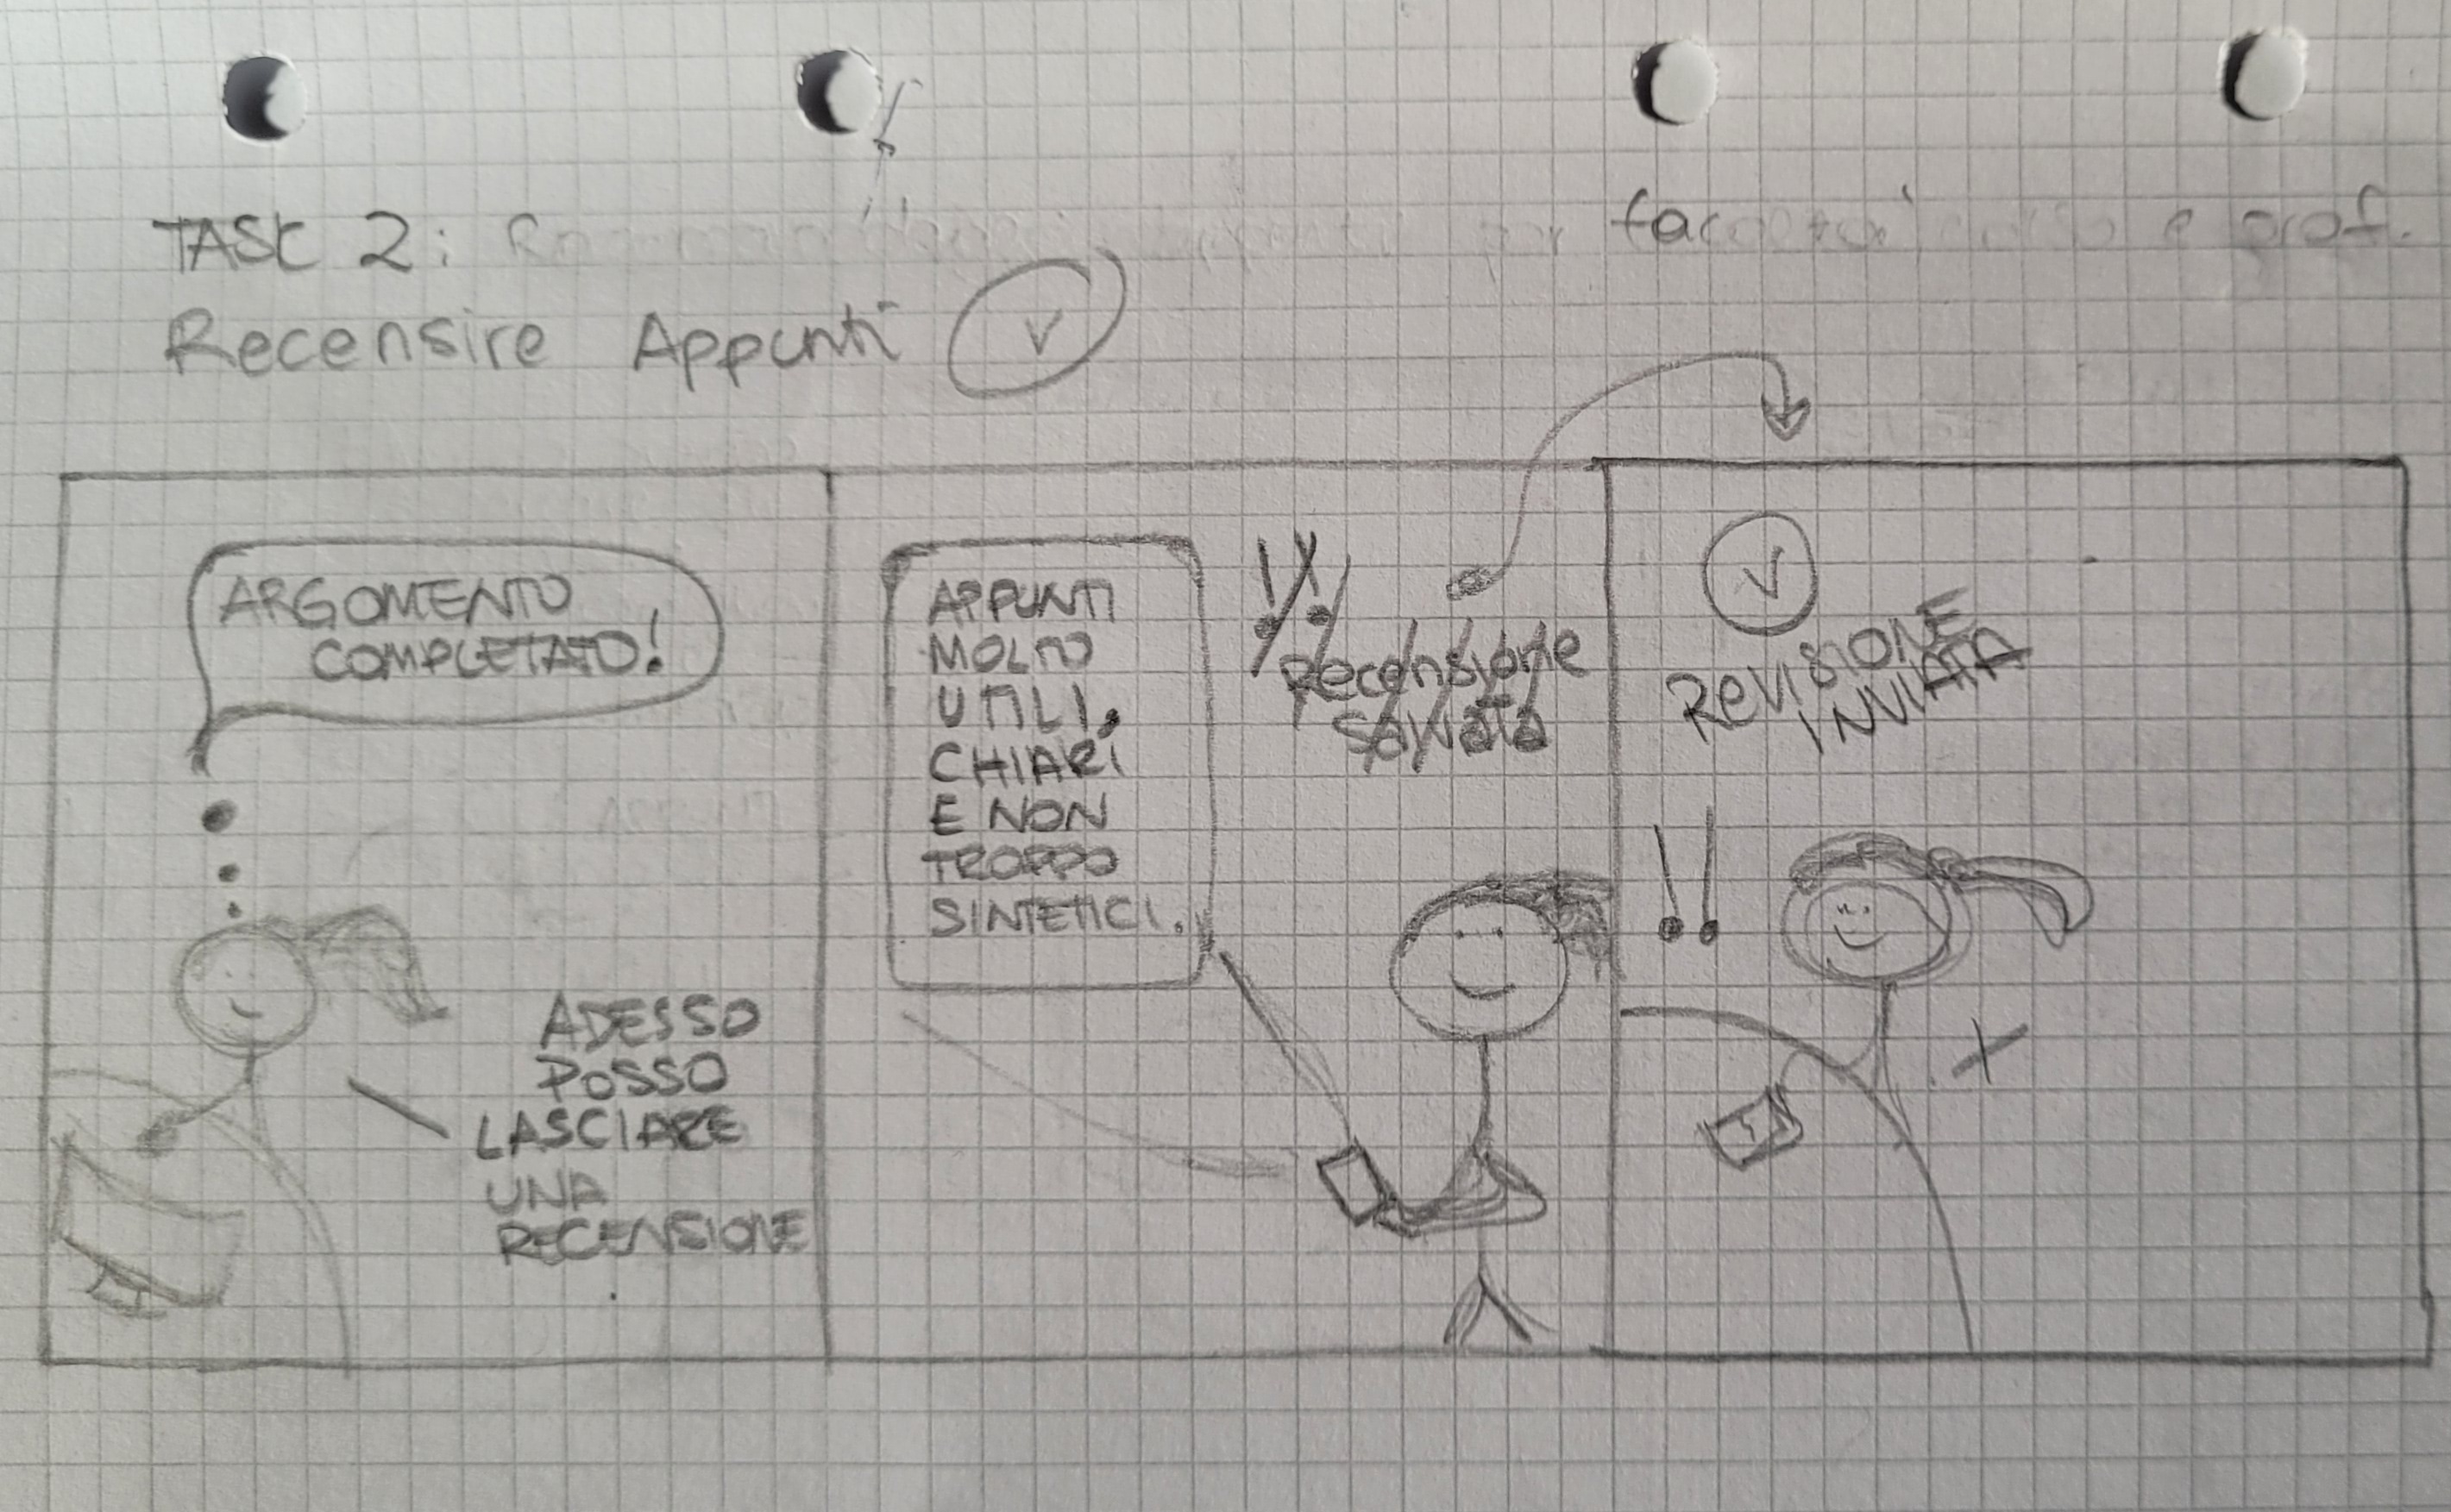 TASK 2: per facoltà corso e prof.
Recensire Appunti V
ARGOMENTO
COMPLETATO!
ADESSO
POSSO
LASCIARE
UNA
RECENSIONE
APPUNTI
MOLTO
UTILI.
CHIARI
E NON
TROPPO
SINTETICI.
!!
Recensione
Salvata
V
REVISIONE
INVIATA
!!